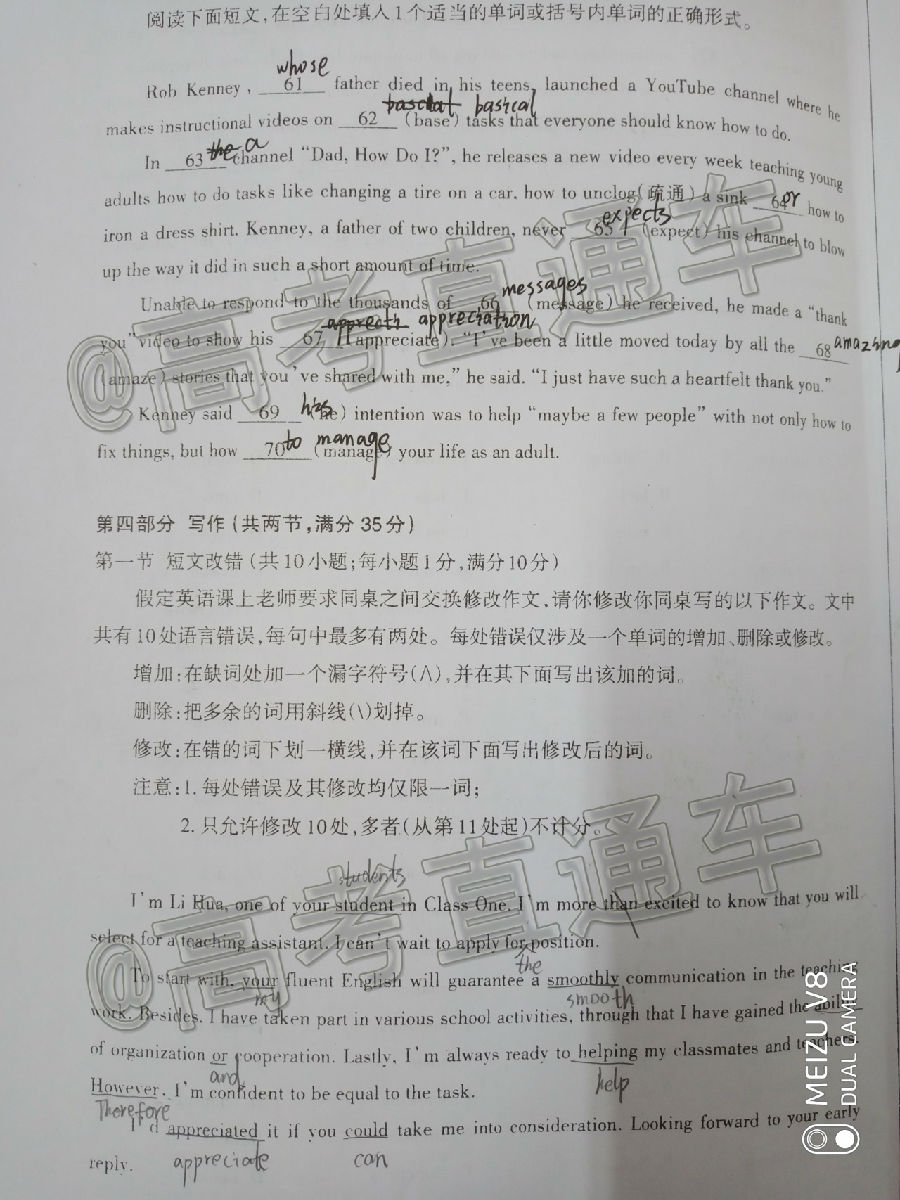 阅读下面短文,在空白处填入1个适当的单词或括号内单词的正确形式。
whose
Rob Kenney, 61 father died in his teens, launched a YouTube channel where he
bascial
makes instructional videos on 62 (base) tasks that everyone should know how to do.
In 63 the a channel "Dad, How Do I?", he releases a new video every week teaching young
adults how to do tasks like changing a tire on a car, how to unclog(疏通) a sink 64 or how to
expects
iron a dress shirt. Kenney, a father of two children, never 65 (expect) his channel to blow
up the way it did in such a short amount of time.
messages
Unable to respond to the thousands of 66 (message) he received, he made a "thank
appreciation
you" video to show his 67 (appreciate). "I've been a little moved today by all the 68 amazing
(amaze) stories that you've shared with me," he said. "I just have such a heartfelt thank you."
Kenney said 69 his (he) intention was to help "maybe a few people" with not only how to
fix things, but how 70 to manage (manage) your life as an adult.
第四部分 写作(共两节,满分35分)
第一节 短文改错(共10小题;每小题1分,满分10分)
假定英语课上老师要求同桌之间交换修改作文,请你修改你同桌写的以下作文。文中
共有10处语言错误,每句中最多有两处。每处错误仅涉及一个单词的增加、删除或修改。
增加:在缺词处加一个漏字符号(∧),并在其下面写出该加的词。
删除:把多余的词用斜线(\)划掉。
修改:在错的词下划一横线,并在该词下面写出修改后的词。
注意:1. 每处错误及其修改均仅限一词;
2. 只允许修改10处,多者(从第11处起)不计分。
students
I'm Li Hua, one of your student in Class One. I'm more than excited to know that you will
select for a teaching assistant. I can't wait to apply for position.
the
To start with, your fluent English will guarantee a smoothly communication in the teaching
my smooth
work. Besides, I have taken part in various school activities, through that I have gained the
of organization or cooperation. Lastly, I'm always ready to helping my classmates and teachers.
and help
However, I'm confident to be equal to the task.
Therefore
I'd appreciated it if you could take me into consideration. Looking forward to your early
reply. appreciate can
@高考直通车
@高考直通车
MEIZU V8
DUAL CAMERA